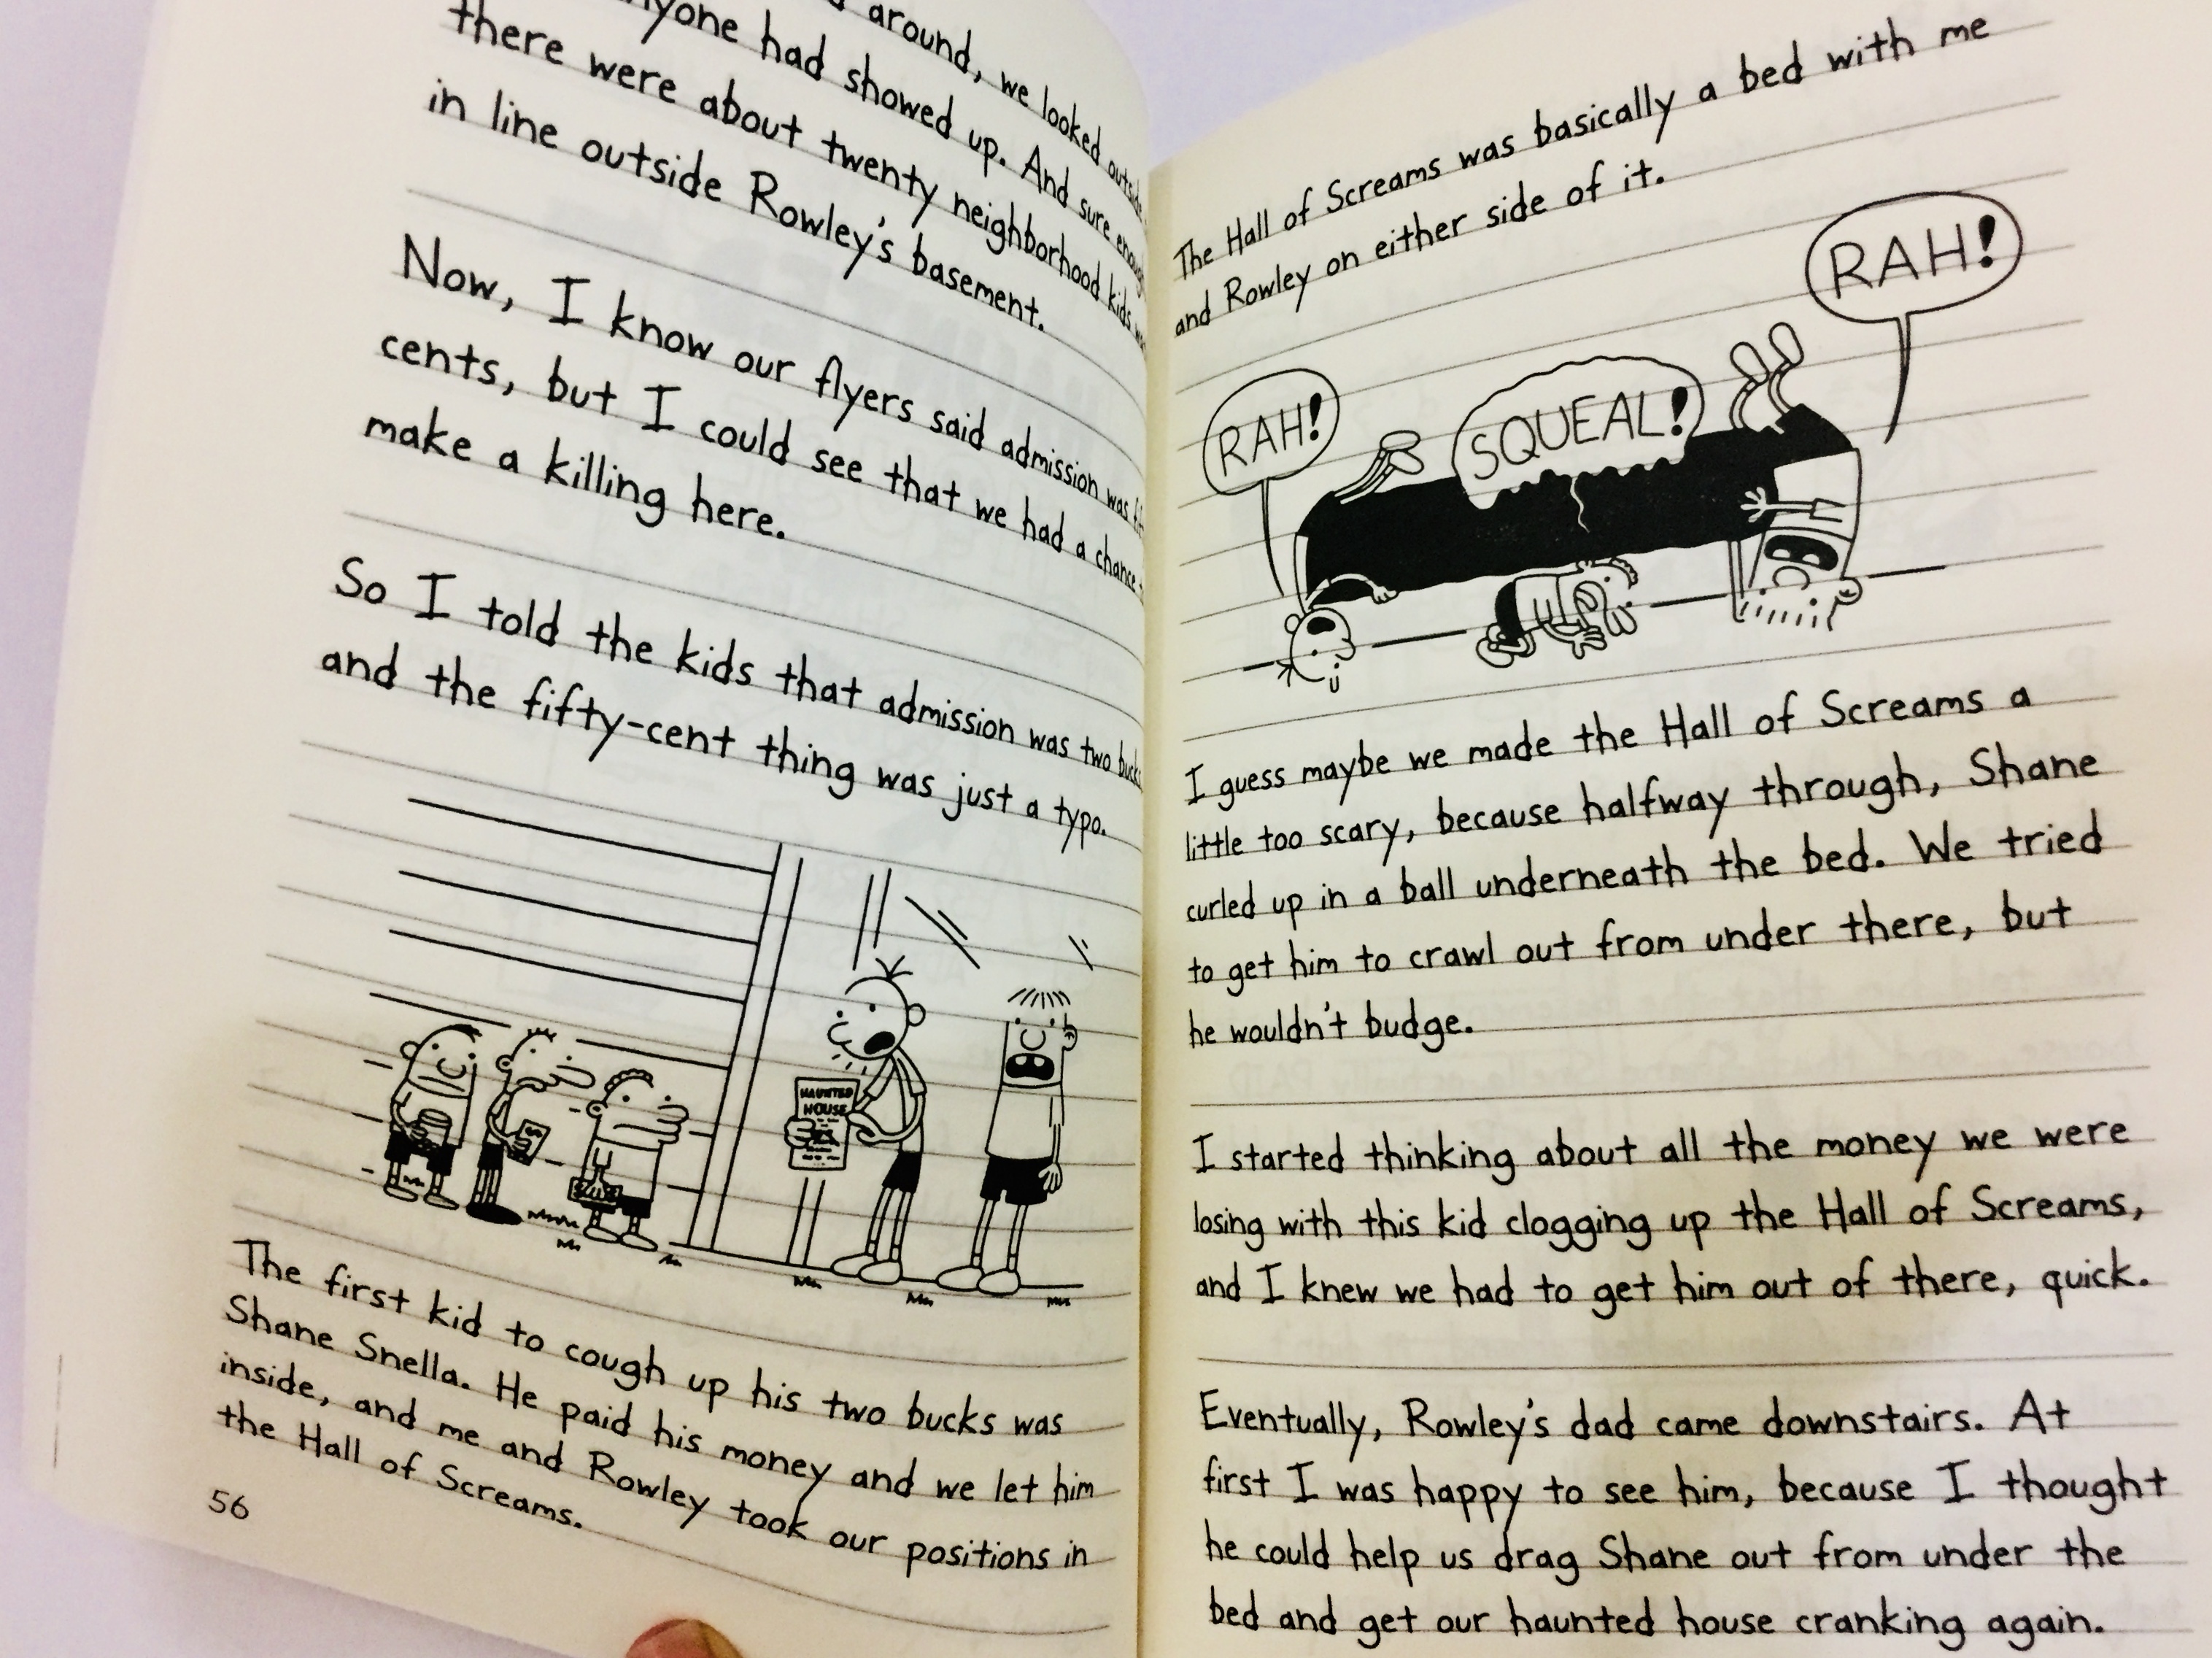 around, we looked outside
anyone had showed up. And sure enough
there were about twenty neighborhood kids
in line outside Rowley's basement.
Now, I know our flyers said admission was
cents, but I could see that we had a chance
make a killing here.
So I told the kids that admission was two bucks
and the fifty-cent thing was just a typo.
HAUNTED
HOUSE
The first kid to cough up his two bucks was
Shane Snella. He paid his money and we let him
inside, and me and Rowley took our positions in
the Hall of Screams.
56
The Hall of Screams was basically a bed with me
and Rowley on either side of it.
RAH!
SQUEAL!
RAH!
I guess maybe we made the Hall of Screams a
little too scary, because halfway through, Shane
curled up in a ball underneath the bed. We tried
to get him to crawl out from under there, but
he wouldn't budge.
I started thinking about all the money we were
losing with this kid clogging up the Hall of Screams,
and I knew we had to get him out of there, quick.
Eventually, Rowley's dad came downstairs. At
first I was happy to see him, because I thought
he could help us drag Shane out from under the
bed and get our haunted house cranking again.